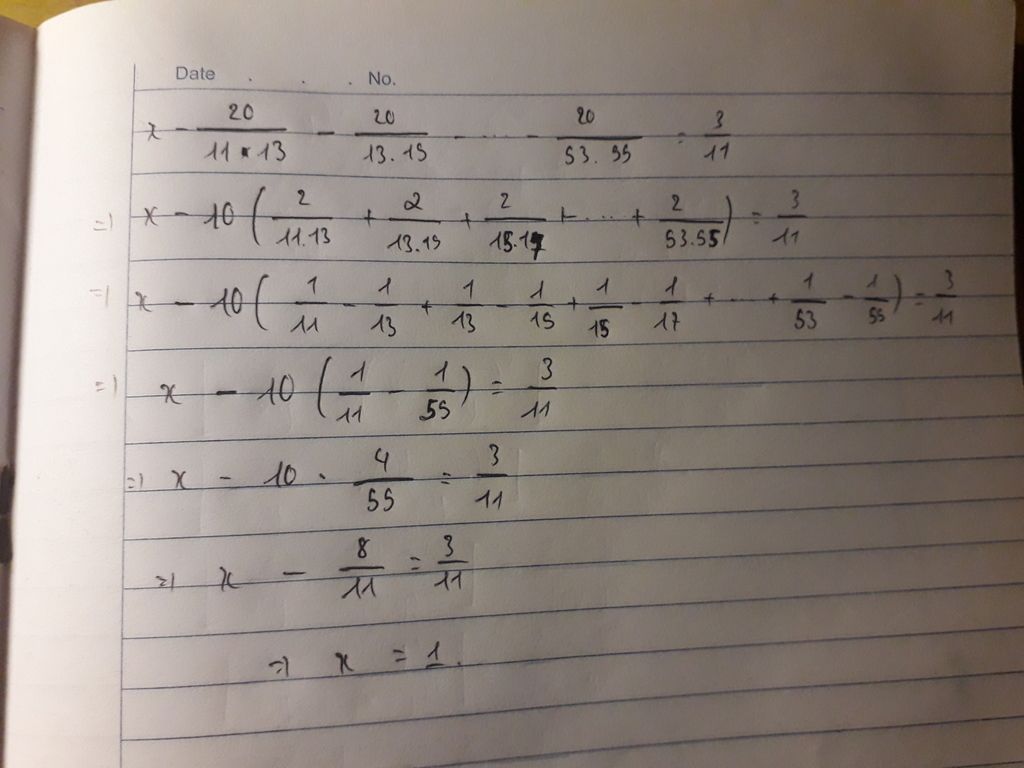 Date . . . No.
x - 20/(11 . 13) - 20/(13.15) - .... - 20/(53.55) = 3/11
=) x - 10 (2/(11.13) + 2/(13.15) + 2/(15.17) + .... + 2/(53.55)) = 3/11
=) x - 10 (1/11 - 1/13 + 1/13 - 1/15 + 1/15 - 1/17 + .... + 1/53 - 1/55) = 3/11
=) x - 10 (1/11 - 1/55) = 3/11
=) x - 10 . 4/55 = 3/11
=) x - 8/11 = 3/11
=) x = 1.